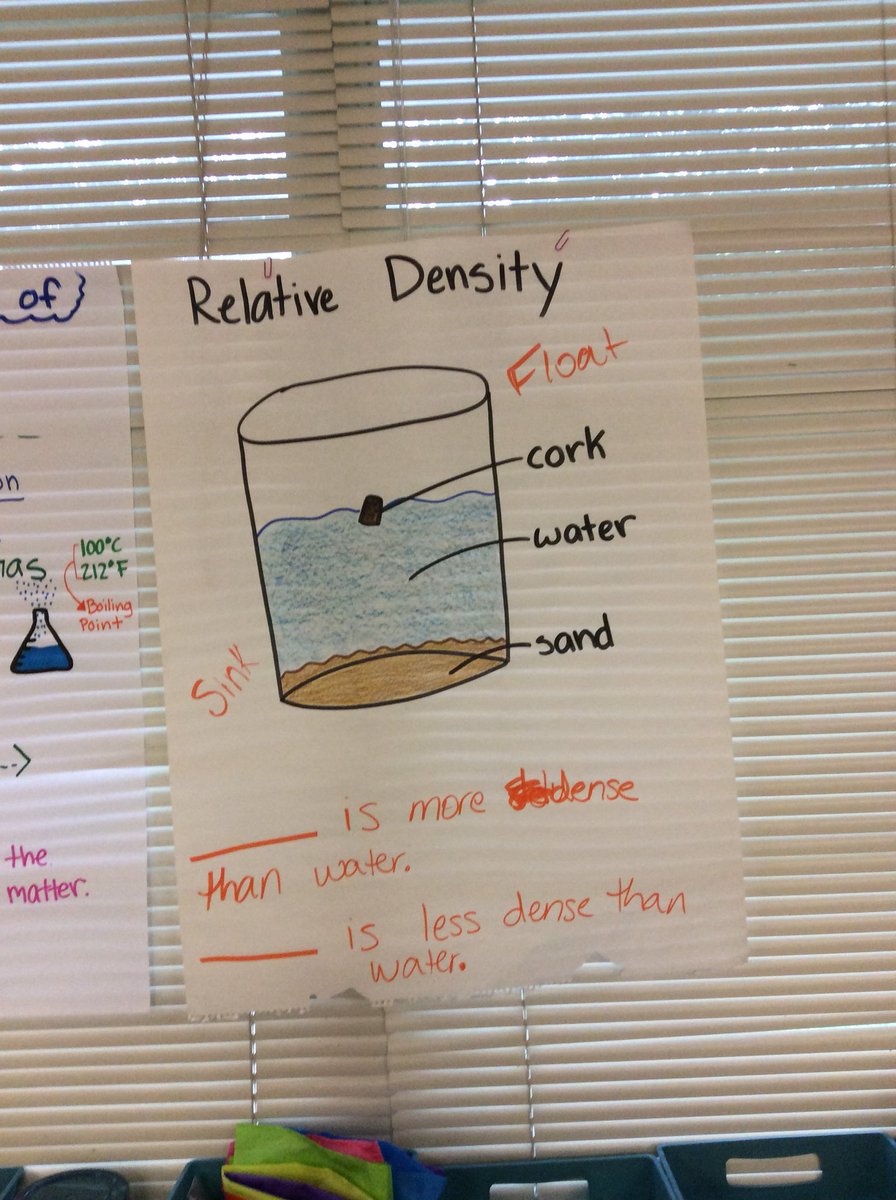 of
on
100°C
212°F
Boiling
Point
the
matter.
Relative Density
Float
cork
water
sand
Sink
____ is more dense
than water.
____ is less dense than
water.